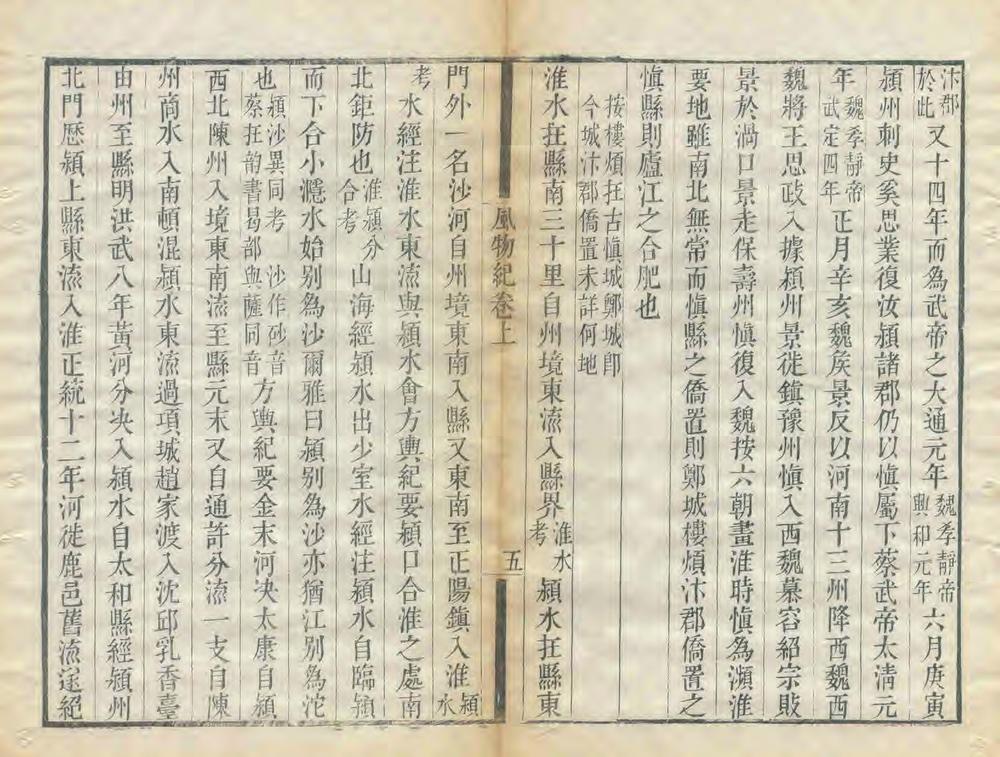 汴郡於此又十四年而為武帝之大通元年魏孝靜帝興和元年六月庚寅
潁州刺史奚思業復汝潁諸郡仍以愼屬下蔡武帝太清元
年魏孝靜帝武定四年正月辛亥魏矦景反以河南十三州降西魏西
魏將王思政入據潁州景徙鎮豫州愼入西魏慕容紹宗敗
景於渦口景走保壽州愼復入魏按六朝畫淮時愼為瀕淮
要地雖南北無常而愼縣之僑置則鄭城樓煩汴郡僑置之
愼縣則廬江之合肥也
按樓煩在古愼城鄭城卽
今城汴郡僑置未詳何地
淮水在縣南三十里自州境東流入縣界淮水考潁水在縣東
風物紀卷上
五
門外一名沙河自州境東南入縣又東南至正陽鎮入淮潁水
考水經注淮水東流與潁水會方輿紀要潁口合淮之處南
北鉅防也淮潁分合考山海經潁水出少室水經注潁水自臨潁
而下合小㶏水始別為沙爾雅曰潁別為沙亦猶江別為沱
也潁沙異同考沙作砂音蔡在韵書曷部與薩同音方輿紀要金末河決太康自潁
西北陳州入境東南流至縣元末又自通許分流一支自陳
州商水入南頓混潁水東流過項城趙家渡入沈邱乳香臺
由州至縣明洪武八年黃河分決入潁水自太和縣經潁州
北門歷潁上縣東流入淮正統十二年河徙鹿邑舊流遂絕